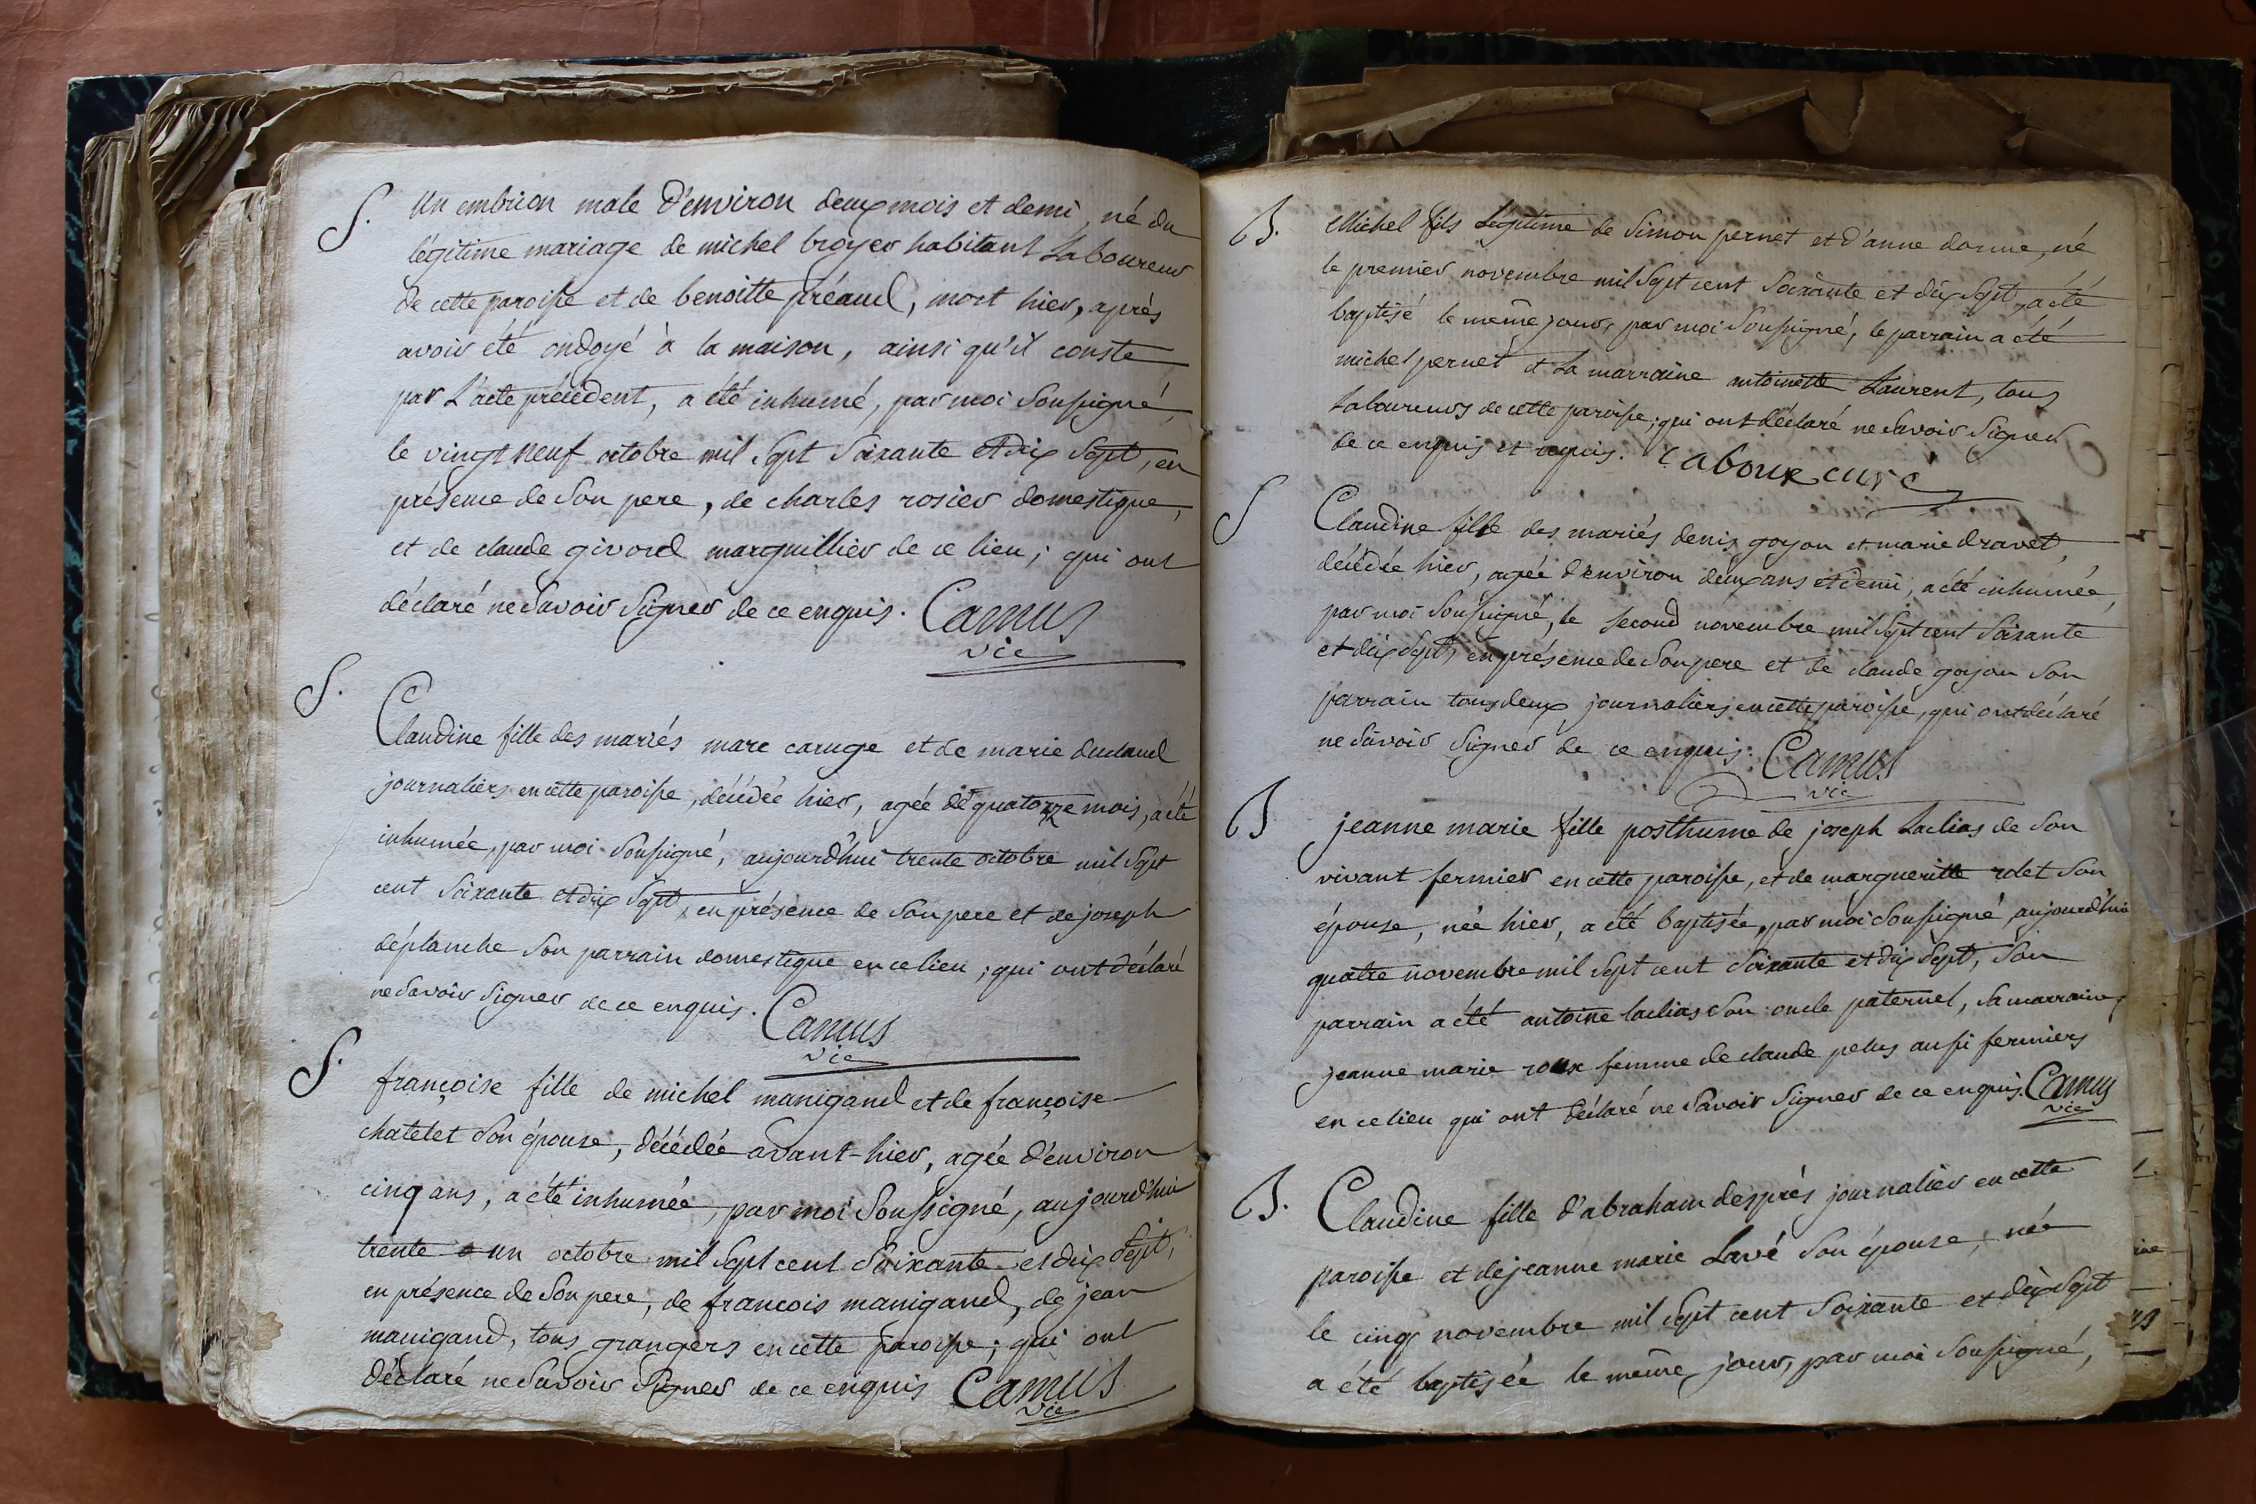 S. Un embrion male d'environ deux mois et demi, né du
légitime mariage de michel broyer habitant Laboureur
de cette paroisse et de benoitte préaud, mort hier, après
avoir été ondoyé à la maison, ainsi qu'il conste
par L'acte précédent, a été inhumé, par moi Soussigné,
le vingt neuf octobre mil Sept Soixante et dix Sept, en
présence de Son pere, de charles rosier domestique,
et de claude givord marguillier de ce lieu; qui ont
déclaré ne Savoir Signer de ce enquis. Camus
vic
S. Claudine fille des mariés marc caruge et de marie duclaud
journaliers en cette paroisse, décédée hier, agée de quatorze mois, a été
inhumée, par moi Soussigné, aujourd'hui trente octobre mil Sept
cent Soixante et dix Sept, en présence de Son pere et de joseph
déplanche Son parrain domestique en ce lieu; qui ont déclaré
ne Savoir Signer de ce enquis. Camus
vic
S. françoise fille de michel manigand et de françoise
chatelet Son épouse, décédée avant-hier, agée d'environ
cinq ans, a été inhumée, par moi Soussigné, aujourd'hui
trente un octobre mil Sept cent Soixante et dix Sept,
en présence de Son pere, de francois manigand, de jean
manigand, tous grangers en cette paroisse; qui ont
déclaré ne Savoir Signer de ce enquis Camus
vic
B. Michel fils Légitime de Simon pernet et d'anne dorme, né
le premier novembre mil Sept cent Soixante et dix Sept, a été
baptisé le même jour, par moi Soussigné, le parrain a été
michel pernet et La marraine antoinette Laurent, tous
Laboureurs de cette paroisse; qui ont déclaré ne Savoir Signer
de ce enquis et requis. Laboux curé
S Claudine fille des mariés denis goyon et marie dravet,
décédée hier, agée d'environ deux ans et demi, a été inhumée,
par moi Soussigné, le second novembre mil Sept cent Soixante
et dix Sept, en présence de Son pere et de claude goyon Son
parrain tous deux journaliers en cette paroisse, qui ont déclaré
ne Savoir Signer de ce enquis. Camus
vic
B jeanne marie fille posthume de joseph Laclias de Son
vivant fermier en cette paroisse, et de margueritte rolet Son
épouse, née hier, a été baptisée, par moi Soussigné, aujourd'hui
quatre novembre mil Sept cent Soixante et dix Sept, Son
parrain a été antoine laclias Son oncle paternel, Sa marraine,
jeanne marie roux femme de claude pelus aussi fermiers
en ce lieu qui ont déclaré ne Savoir Signer de ce enquis. Camus
vic
B. Claudine fille d'abraham desprès journalier en cette
paroisse et de jeanne marie Lavé Son épouse, née
le cinq novembre mil Sept cent Soixante et dix Sept
a été baptisée le même jour, par moi Soussigné,